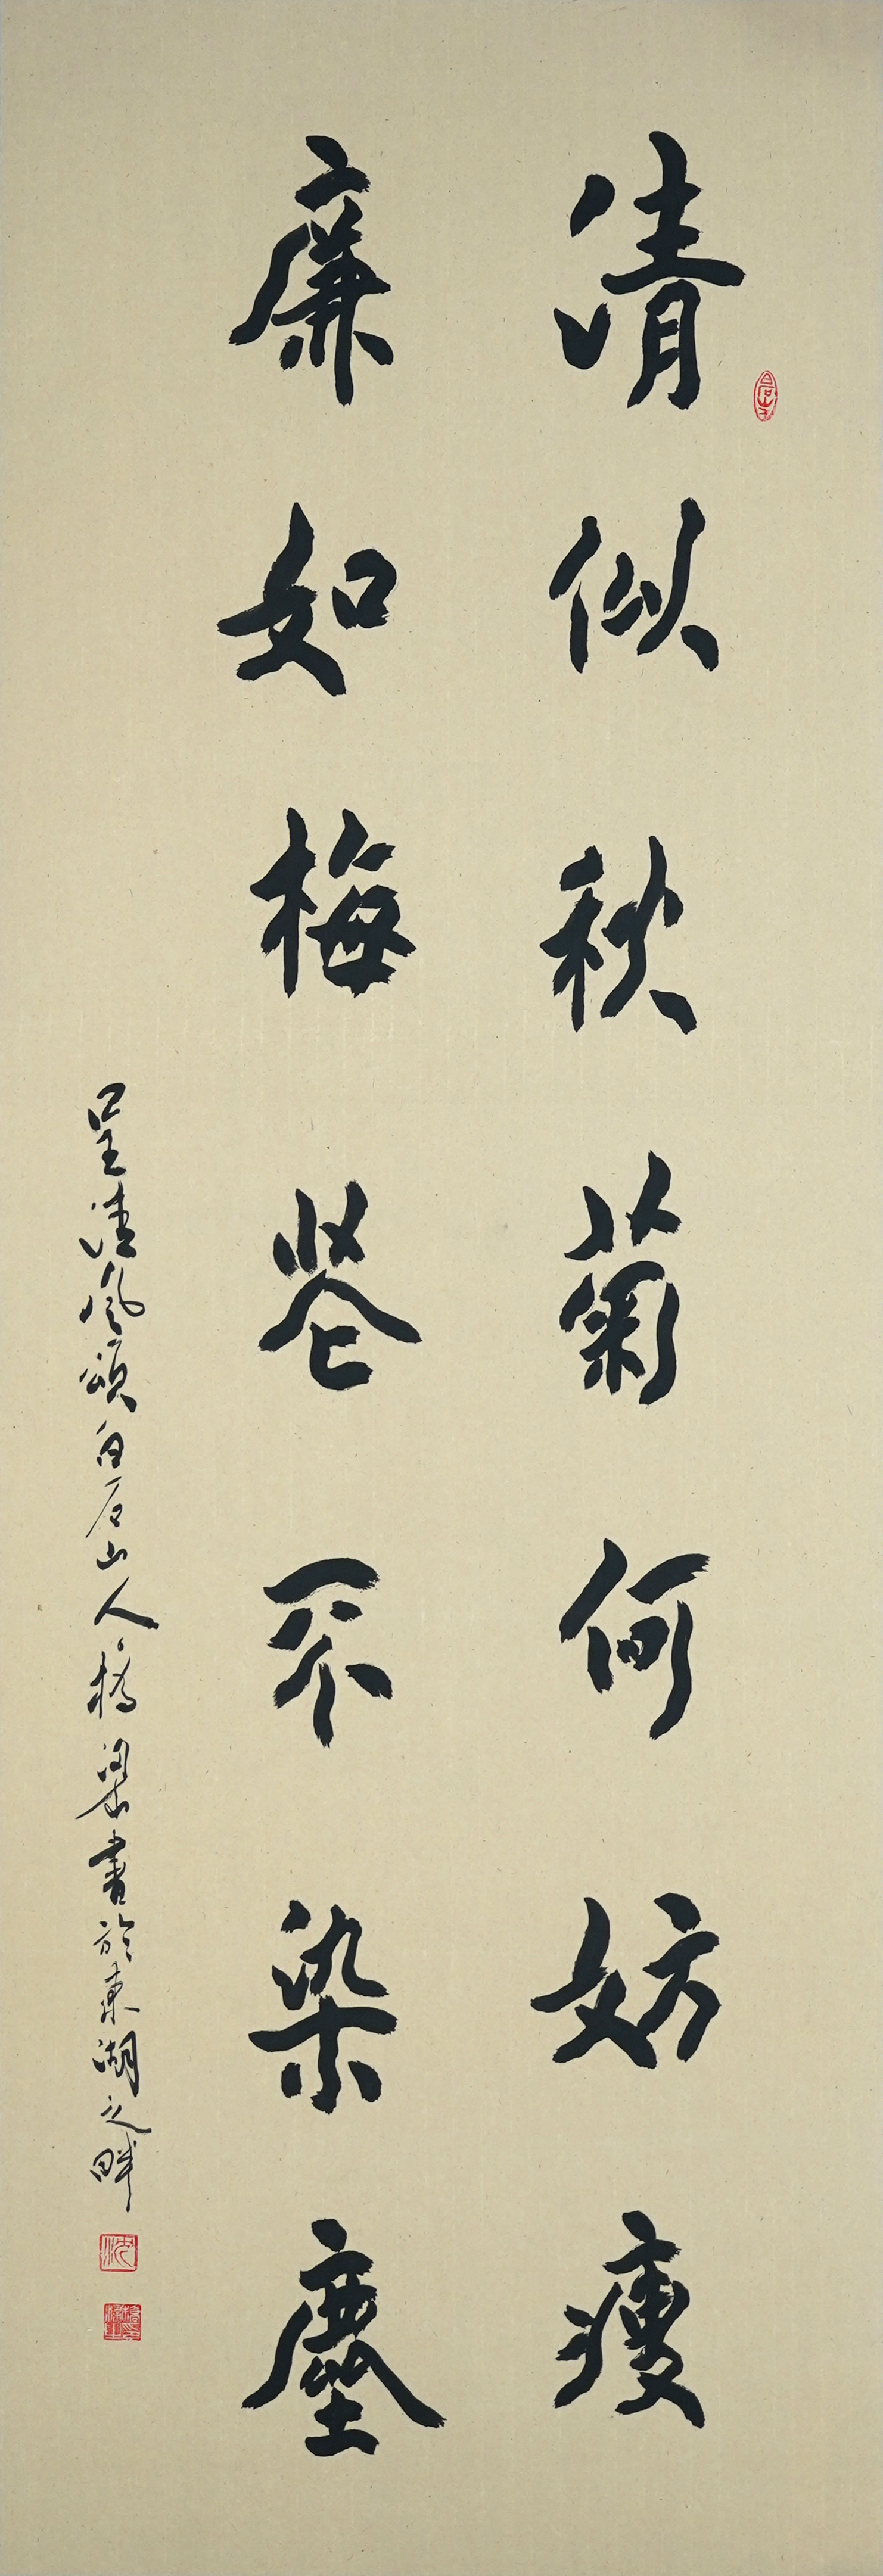 清似秋菊何妨瘦
廉如梅花不染塵
呈清風頌白石山人橋梁書於東湖之畔